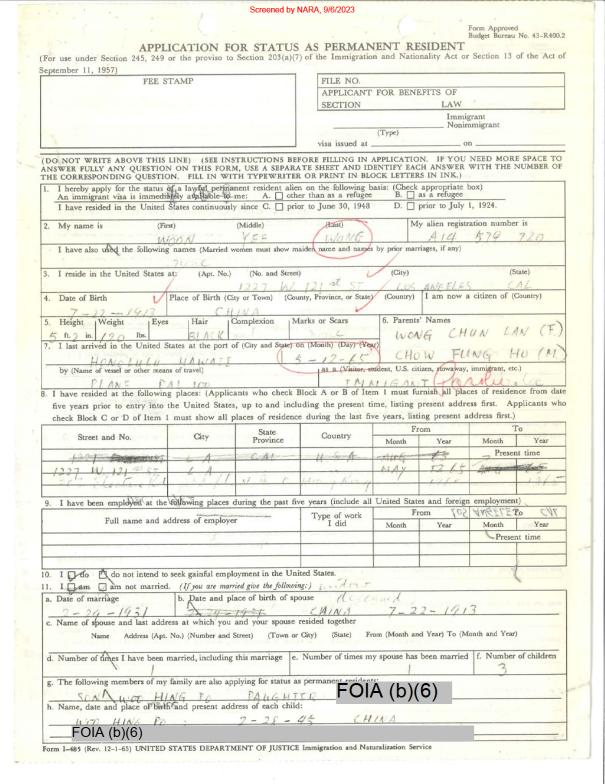 Screened by NARA, 9/6/2023
Form Approved
Budget Bureau No. 43-R400.2
APPLICATION FOR STATUS AS PERMANENT RESIDENT
(For use under Section 245, 249 or the proviso to Section 203(a)(7) of the Immigration and Nationality Act or Section 13 of the Act of
September 11, 1957)
FEE STAMP
FILE NO.
APPLICANT FOR BENEFITS OF
SECTION LAW
Immigrant
Nonimmigrant
(Type)
visa issued at on
(DO NOT WRITE ABOVE THIS LINE) (SEE INSTRUCTIONS BEFORE FILLING IN APPLICATION. IF YOU NEED MORE SPACE TO
ANSWER FULLY ANY QUESTION ON THIS FORM, USE A SEPARATE SHEET AND IDENTIFY EACH ANSWER WITH THE NUMBER OF
THE CORRESPONDING QUESTION. FILL IN WITH TYPEWRITER OR PRINT IN BLOCK LETTERS IN INK.)
1. I hereby apply for the status of a lawful permanent resident alien on the following basis: (Check appropriate box)
An immigrant visa is immediately available to me: A. other than as a refugee B. as a refugee
I have resided in the United States continuously since C. prior to June 30, 1948 D. prior to July 1, 1924.
2. My name is (First) (Middle) (Last) My alien registration number is
WOON YEE WONG A14 579 720
I have also used the following names (Married women must show maiden name and names by prior marriages, if any)
3. I reside in the United States at: (Apt. No.) (No. and Street) (City) (State)
1227 W. 121 st ST LOS ANGELES CAL
4. Date of Birth Place of Birth (City or Town) (County, Province, or State) (Country) I am now a citizen of (Country)
7-22-1913 CHINA
5. Height Weight Eyes Hair Complexion Marks or Scars 6. Parents' Names
5 ft. 2 in. 120 lbs. BLACK WONG CHUN LAN (F)
7. I last arrived in the United States at the port of (City and State) on (Month) (Day) (Year) CHOW FUNG HO (M)
HONOLULU HAWAII 5-12-65
by (Name of vessel or other means of travel) as a (Visitor, student, U.S. citizen, stowaway, immigrant, etc.)
PLANE PAL 100 IMMIGRANT Parolee
8. I have resided at the following places: (Applicants who check Block A or B of Item 1 must furnish all places of residence from date
five years prior to entry into the United States, up to and including the present time, listing present address first. Applicants who
check Block C or D of Item 1 must show all places of residence during the last five years, listing present address first.)
Street and No. City State Province Country From Month Year To Month Year
L A CAL Present time
1227 W. 121 ST L A MAY
9. I have been employed at the following places during the past five years (include all United States and foreign employment)
Full name and address of employer Type of work I did From Month Year To Month Year
Present time
10. I do do not intend to seek gainful employment in the United States.
11. I am am not married. (If you are married give the following:)
a. Date of marriage b. Date and place of birth of spouse deceased
2-29-1931 CHINA 7-22-1913
c. Name of spouse and last address at which you and your spouse resided together
Name Address (Apt. No.) (Number and Street) (Town or City) (State) From (Month and Year) To (Month and Year)
d. Number of times I have been married, including this marriage e. Number of times my spouse has been married f. Number of children
1 1 3
g. The following members of my family are also applying for status as permanent residents:
SON WOO HING PO DAUGHTER FOIA (b)(6)
h. Name, date and place of birth and present address of each child:
WOO HING PO 2-28-45 CHINA
FOIA (b)(6)
Form I-485 (Rev. 12-1-65) UNITED STATES DEPARTMENT OF JUSTICE Immigration and Naturalization Service